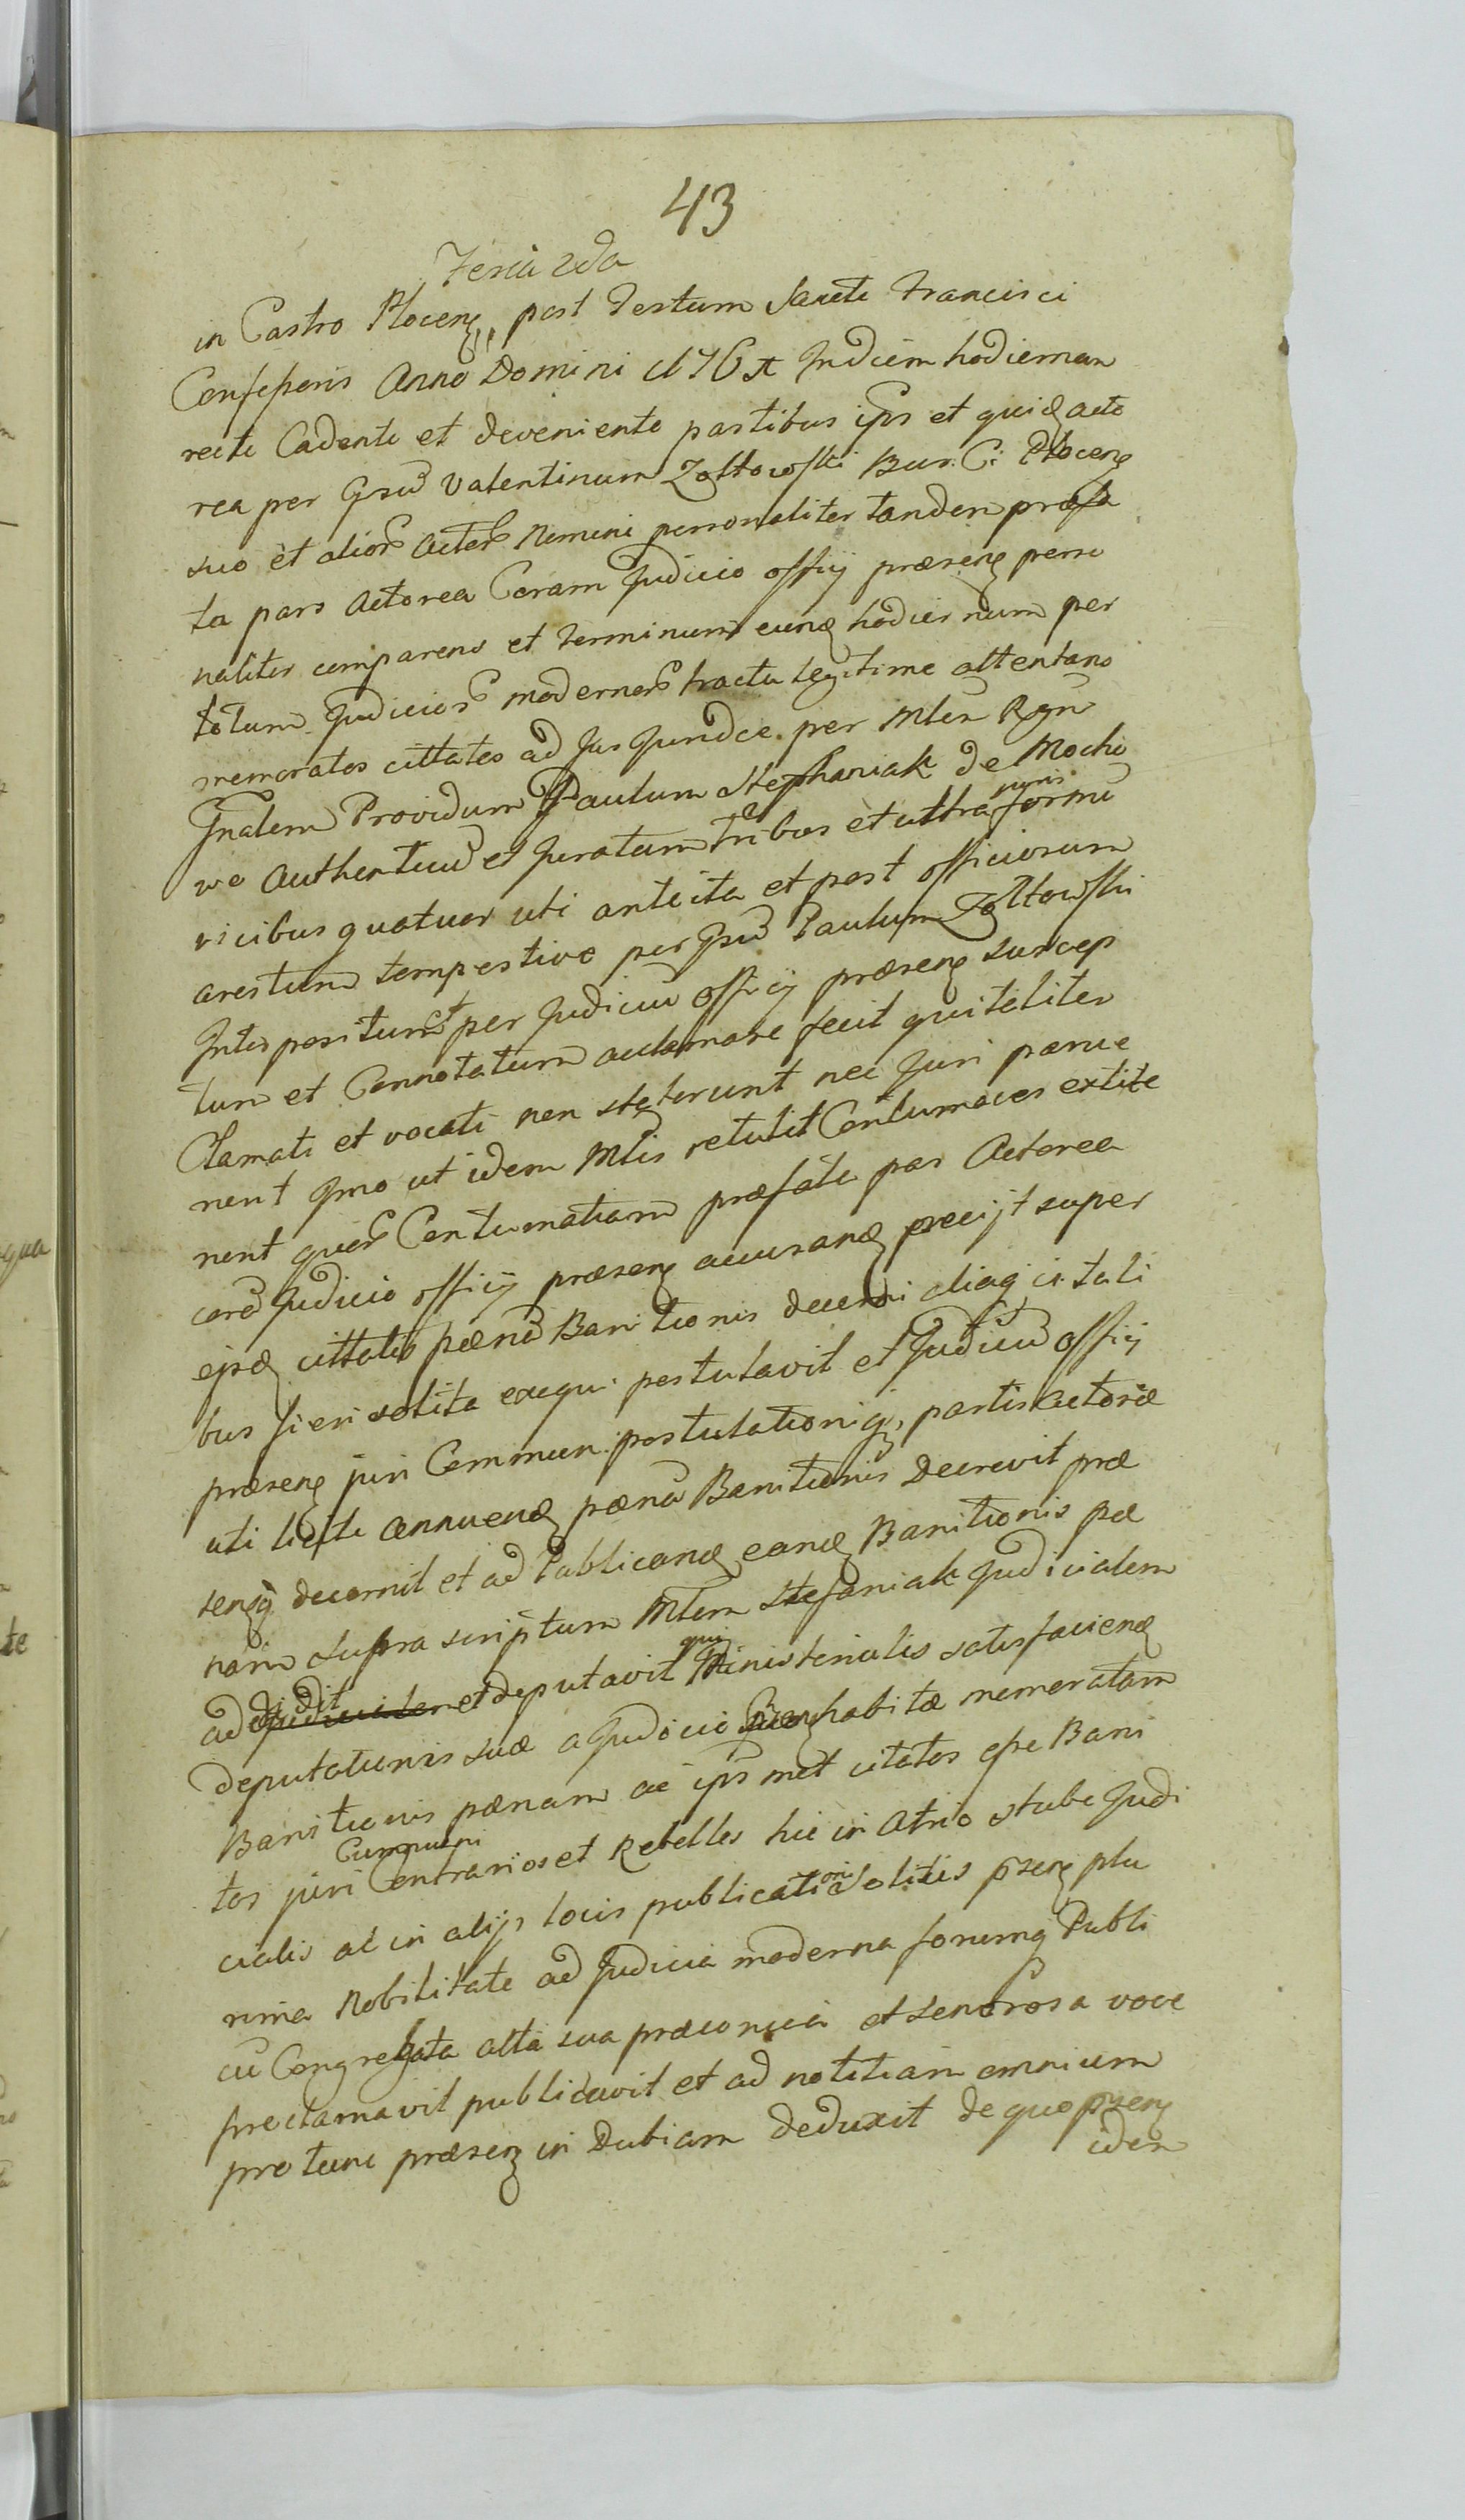 43
Feria 2da
in Castro Plocen. post Festum Sancti Francisci
Confessoris Anno Domini 176 In diem hodiernam
recte Cadente et deveniente partibus ips et quid acto
rea per Gsum Valentinum Zołtowski Bur. C. Plocen
suo et alior actor Nomine personaliter tandem præfa
ta pars Actorea Coram Judicio offij præsen perso
naliter comparens et Terminum eund hodiernum per
totum Judicior modernor tractu legitime attentans
memoratos cittatos ad Jus Jundce per Mlem Rgn
Gnalem Providum Paulum Stephaniak de Mocho
wo Authenticu et Juratum Tribus et ultra juris formi
vicibus quatuor uti anteita et post officiosum
arestum tempestive per Gsu Paulum Zołtowski
Interpositum et per Judiciu officij præsen suscep
tum et Connotatum acclamare fecit qui taliter
Clamati et vocati non steterunt nec Juri parue
runt Imo ut idem Mlis retulit Contumaces extite
runt quor Contumatiam præfata pars Actorea
cora Judicio officij præsen accusand precijt super
ejsd cittatis pæna Banitionis decerni aliaq in tali
bus fieri solita exequi postulavit et Judiciu offij
præsen juri Communi postulationiq partis Actoræ
uti licite annuend pæna Banitionis Decrevit præ
senq decernit et ad Publicand eand Banitionis pæ
nam supra scriptum Mlem Stefaniak Judicialem
addidit et deputavit qui Ministerialis satisfaciend
deputationis suæ a Judicio præsen habitæ memoratam
Banitionis pænam ac ips met citatos esse Bani
tos juri Communi Contrarios et Rebelles hic in Atrio stube Judi
cialis ac in alijs locis publicationi solitis przen plu
rima Nobilitate ad Judicia moderna forumq Publi
cu Congregata alta sua præconicia et senorosa voce
proclamavit publicavit et ad notitiam omnium
pro tunc præsen in Dubiam deduxit de quo przen
idem